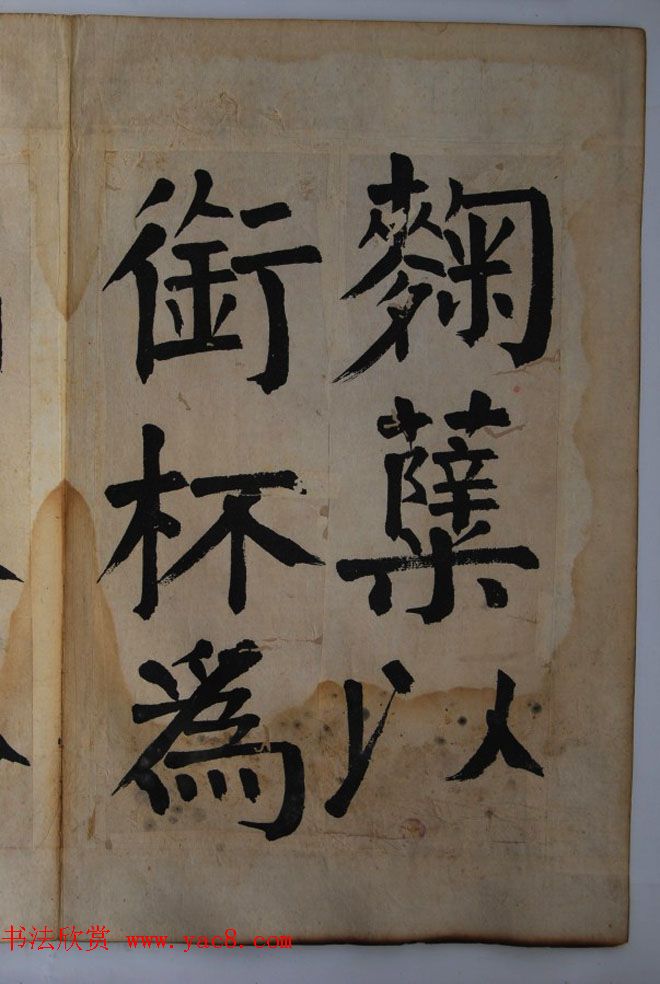 麴蘖以
銜杯為
书法欣赏 www.yac8.com